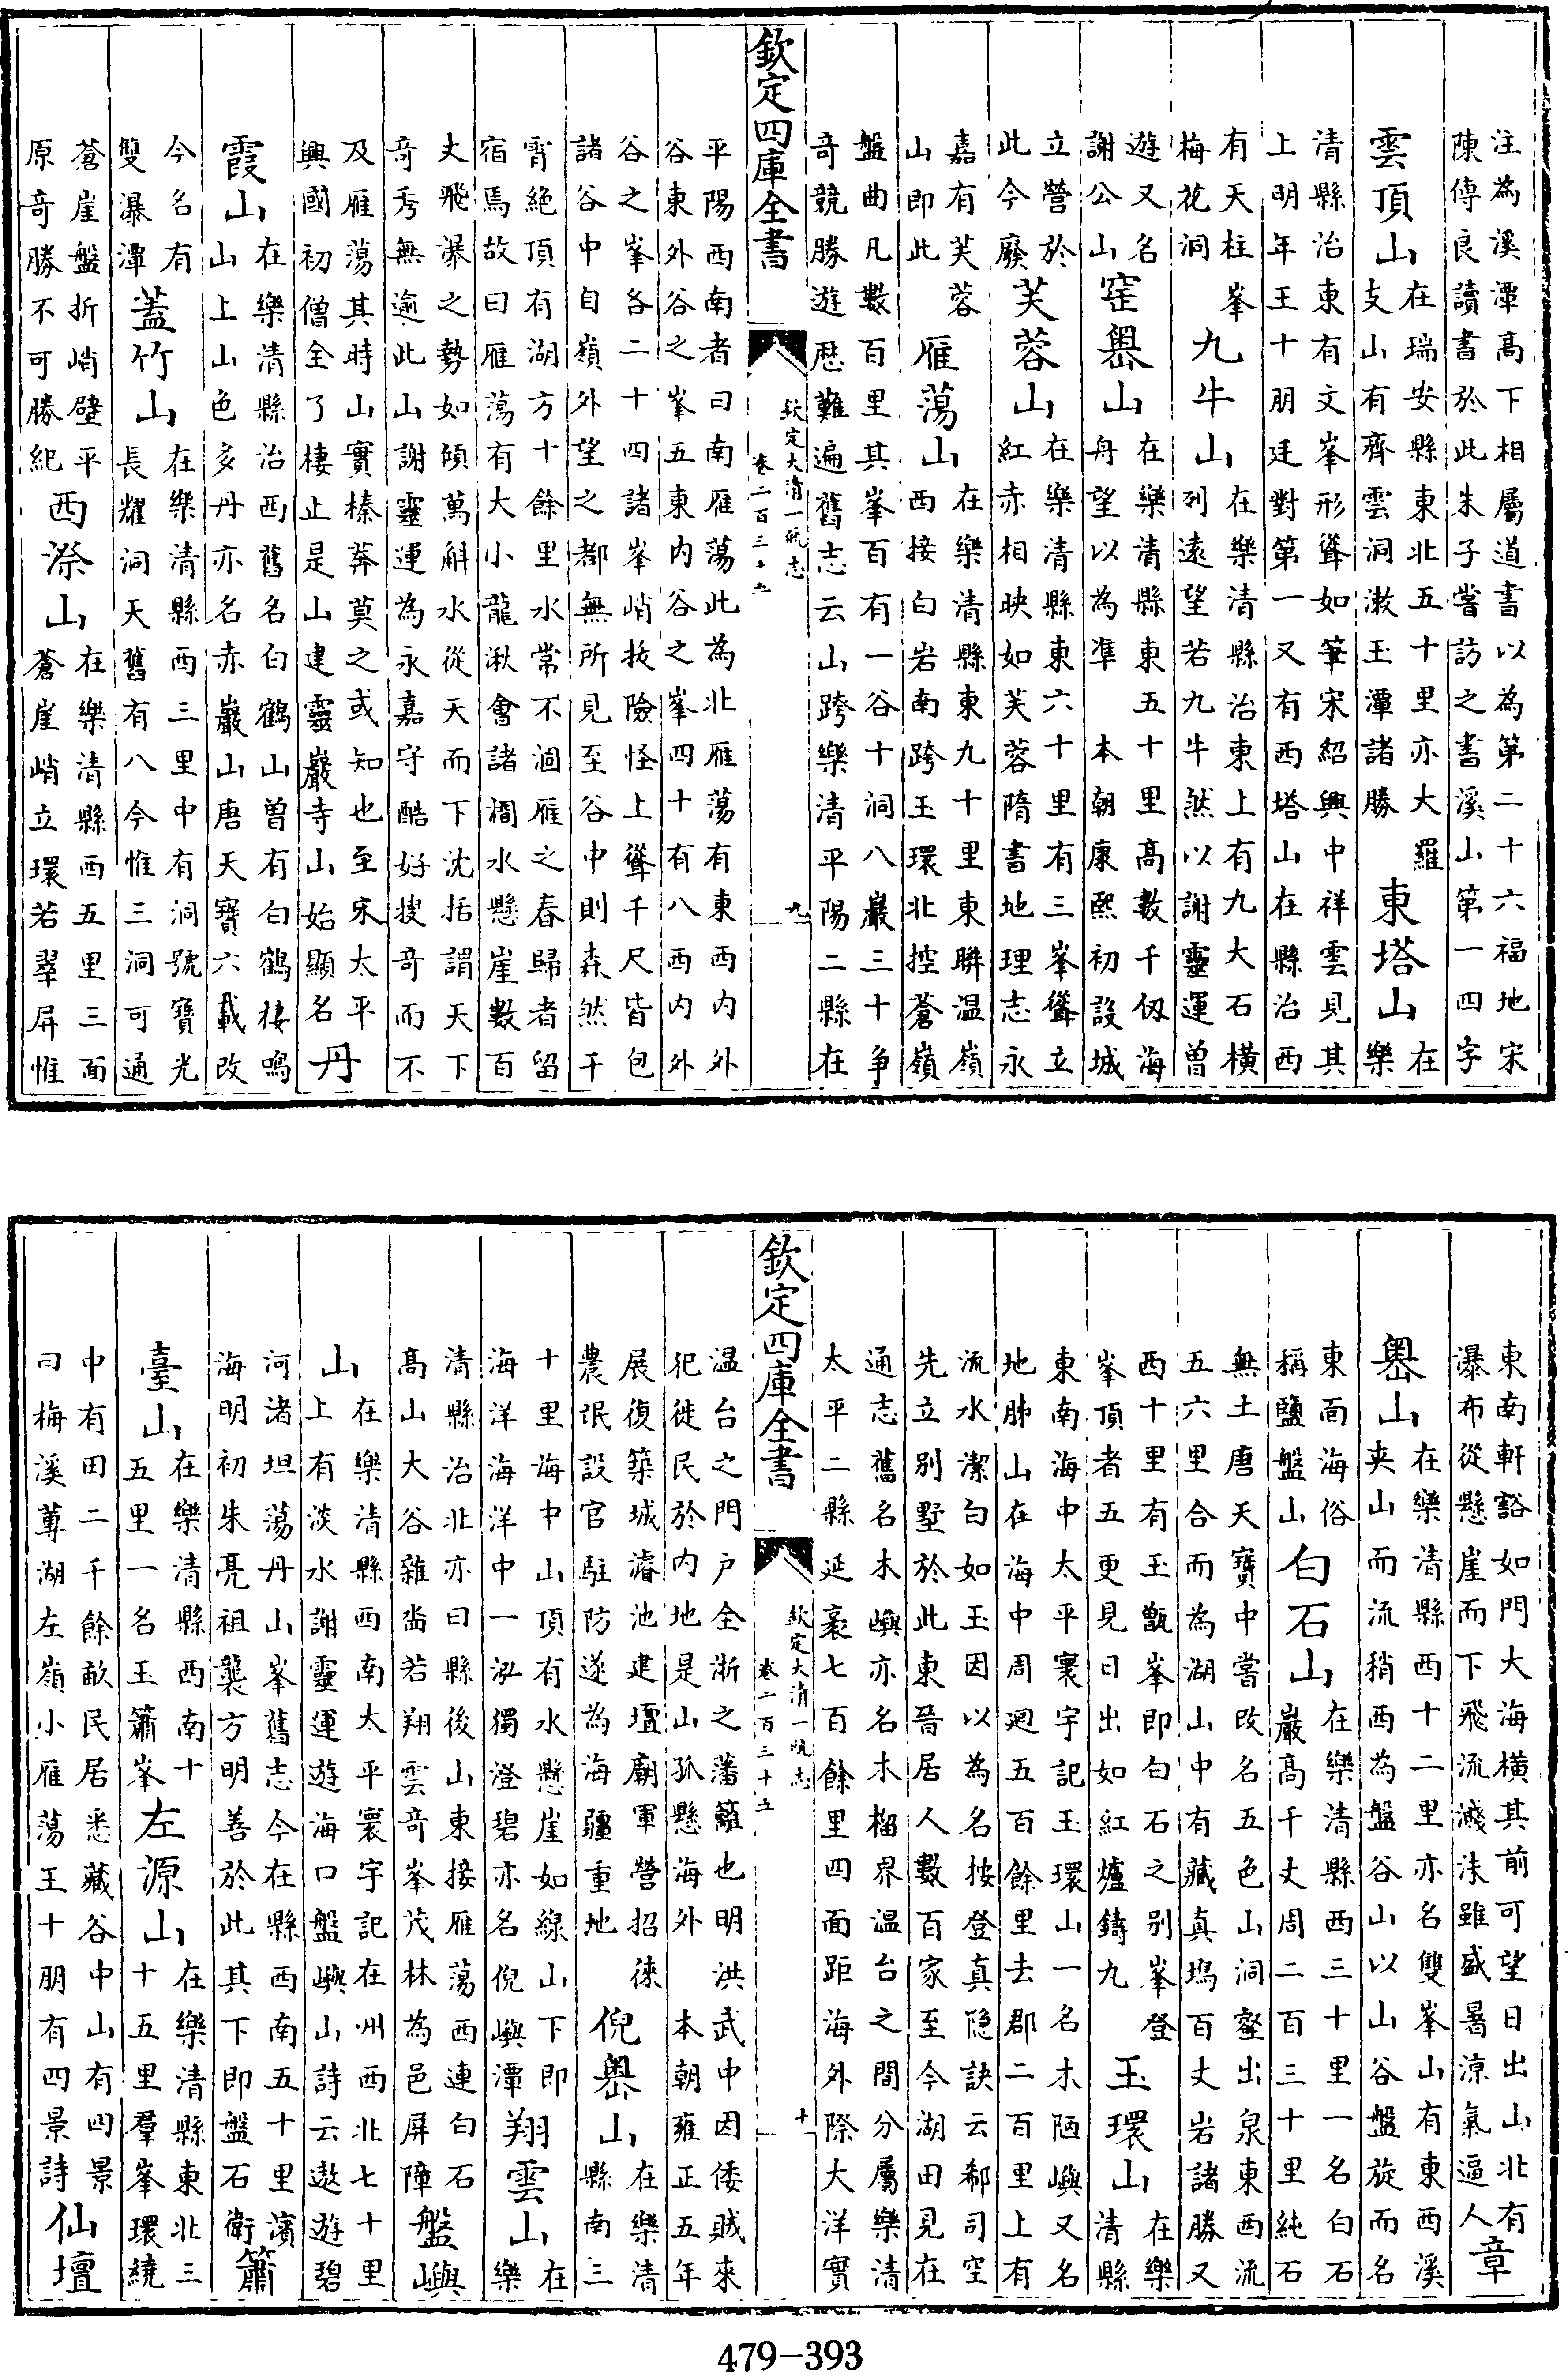 注為溪潭髙下相屬道書以為第二十六福地宋
陳傅良讀書於此朱子嘗訪之書溪山第一四字
雲頂山在瑞安縣東北五十里亦大羅
支山有齊雲洞漱玉潭諸勝東塔山在
樂
清縣治東有文峯形聳如筆宋紹興中祥雲見其
上明年王十朋廷對第一又有西塔山在縣治西
有天柱峯
梅花洞九牛山在樂清縣治東上有九大石橫
列遠望若九牛然以謝靈運曽
遊又名
謝公山窑嶴山在樂清縣東五十里髙數千仭海
舟望以為凖 本朝康熙初設城
立營於
此今廢芙蓉山在樂清縣東六十里有三峯聳立
紅赤相映如芙蓉隋書地理志永
嘉有芙蓉
山即此雁蕩山在樂清縣東九十里東聨温嶺
西接白岩南跨玉環北控蒼嶺
盤曲凡數百里其峯百有一谷十洞八巖三十争
竒競勝遊厯難遍舊志云山跨樂清平陽二縣在
欽定四庫全書
欽定大清一統志
卷二百三十五
九
平陽西南者曰南雁蕩此為北雁蕩有東西内外
谷東外谷之峯五東内谷之峯四十有八西内外
谷之峯各二十四諸峯峭拔險怪上聳千尺皆包
諸谷中自嶺外望之都無所見至谷中則森然干
霄絶頂有湖方十餘里水常不涸雁之春歸者留
宿焉故曰雁蕩有大小龍湫會諸㵎水懸崖數百
丈飛瀑之勢如傾萬斛水從天而下沈括謂天下
竒秀無逾此山謝靈運為永嘉守酷好搜竒而不
及雁蕩其時山實榛莽莫之或知也至宋太平
興國初僧全了棲止是山建靈巖寺山始顯名丹
霞山在樂清縣治西舊名白鶴山曽有白鶴棲鳴
山上山色多丹亦名赤巖山唐天寶六載改
今名有
雙瀑潭蓋竹山在樂清縣西三里中有洞號寶光
長耀洞天舊有八今惟三洞可通
蒼崖盤折峭壁平
原竒勝不可勝紀西漈山在樂清縣西五里三面
蒼崖峭立環若翠屏惟
東南軒豁如門大海橫其前可望日出山北有
瀑布從懸崖而下飛流濺沫雖盛暑凉氣逼人章
嶴山在樂清縣西十二里亦名雙峯山有東西溪
夾山而流稍西為盤谷山以山谷盤旋而名
東面海俗
稱鹽盤山白石山在樂清縣西三十里一名白石
巖髙千丈周二百三十里純石
無土唐天寶中嘗改名五色山洞壑出泉東西流
五六里合而為湖山中有藏真塢百丈岩諸勝又
西十里有玉甑峯即白石之别峯登
峯頂者五更見日出如紅爐鑄九玉環山在樂
清縣
東南海中太平寰宇記玉環山一名木陋嶼又名
地肺山在海中周廻五百餘里去郡二百里上有
流水潔白如玉因以為名按登真隐訣云郗司空
先立别墅於此東晉居人數百家至今湖田見在
通志舊名木嶼亦名木榴界温台之間分屬樂清
太平二縣延袤七百餘里四面距海外際大洋實
欽定四庫全書
欽定大清一統志
卷二百三十五
十
温台之門户全浙之藩籬也明洪武中因倭贼來
犯徙民於内地是山孤懸海外 本朝雍正五年
展復築城濬池建壇廟軍營招徠
農氓設官駐防遂為海疆重地倪嶴山在樂清
縣南三
十里海中山頂有水懸崖如線山下即
海洋海洋中一泓獨澄碧亦名倪嶼潭翔雲山在
樂
清縣治北亦曰縣後山東接雁蕩西連白石
髙山大谷雜畓若翔雲竒峯茂林為邑屏障盤嶼
山在樂清縣西南太平寰宇記在州西北七十里
上有淡水謝靈運遊海口盤嶼山詩云遨遊碧
河渚坦蕩丹山峯舊志今在縣西南五十里濱
海明初朱亮祖襲方明善於此其下即盤石衛簫
臺山在樂清縣西南十
五里一名玉簫峯左源山在樂清縣東北三
十五里羣峯環繞
中有田二千餘畝民居悉藏谷中山有四景
曰梅溪蓴湖左嶺小雁蕩王十朋有四景詩仙壇
479-393